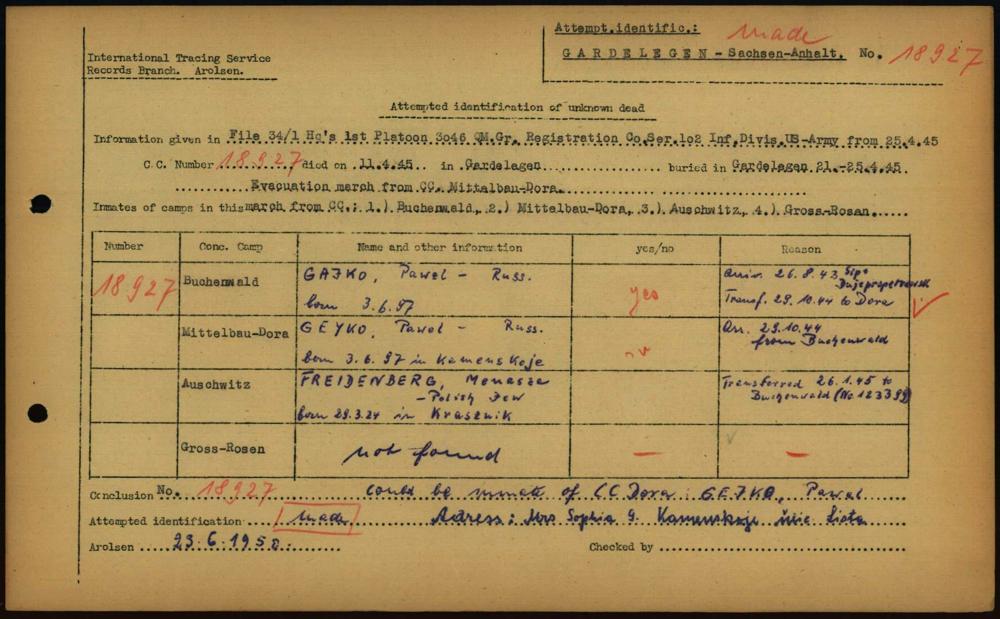 Attempt.identific.: made
International Tracing Service
Records Branch. Arolsen.
GARDELEGEN - Sachsen-Anhalt. No. 18927
Attempted identification of unknown dead
Information given in File 34/1 Hq's 1st Platoon 3046 QM.Gr. Registration Co.Ser.102 Inf.Divis.US-Army from 25.4.45
C.C. Number 18927 died on 11.4.45 in Gardelagen buried in Gardelagen 21.-25.4.45
Evacuation march from CC. Mittelbau-Dora.
Inmates of camps in this march from CC.: 1.) Buchenwald, 2.) Mittelbau-Dora, 3.) Auschwitz, 4.) Gross-Rosan.
Number Conc. Camp Name and other information yes/no Reason
18927 Buchenwald GAJKO, Pawel - Russ. yes
born 3.6.97
arriv. 26.8.43 Sipo
Dnjepropetrowsk
Transf. 29.10.44 to Dora
Mittelbau-Dora GEYKO, Pawel - Russ.
born 3.6.97 in Kamenskoje
Arr. 29.10.44
from Buchenwald
Auschwitz FREIDENBERG, Menasze
- Polish Jew
born 29.3.24 in Krasznik
Transferred 26.1.45 to
Buchenwald (No 123399)
Gross-Rosen not found — —
Conclusion No. 18927 could be inmate of CC Dora: GEJKO, Pawel
Attempted identification made Adress: Mrs Sophia G. Kamenskoje
Arolsen 23.6.1950. Checked by